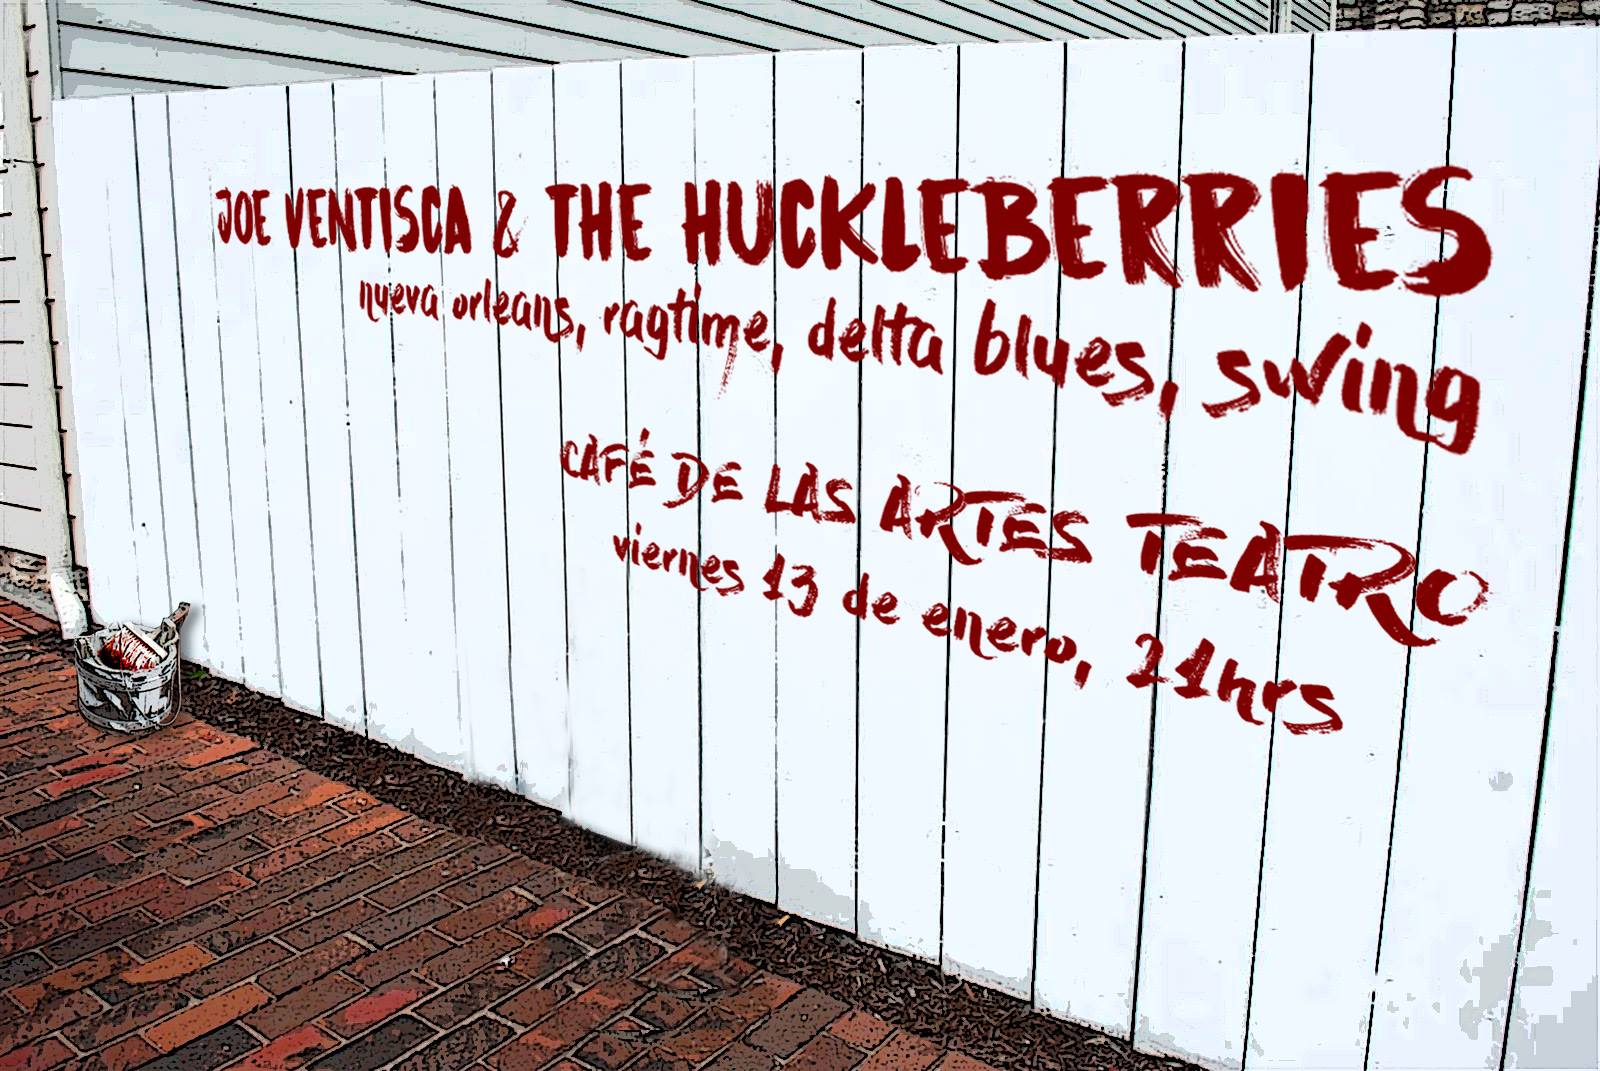 JOE VENTISCA & THE HUCKLEBERRIES
nueva orleans, ragtime, delta blues, swing
CAFÉ DE LAS ARTES TEATRO
viernes 13 de enero, 21hrs